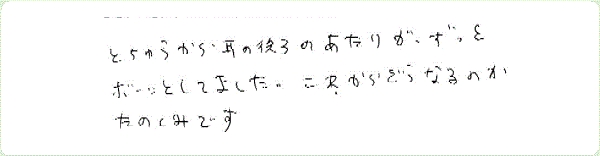 とちゅうから耳の後ろのあたりが、ずっと
ボーッとしてました。これからどうなるのか
たのしみです